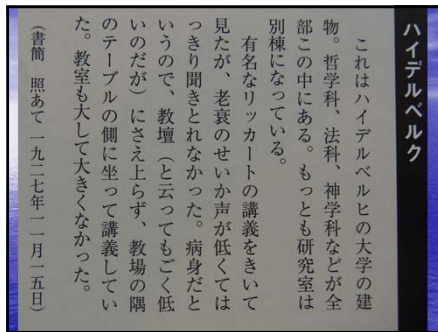 ハイデルベルク
これはハイデルベルヒの大学の建
物。哲学科、法科、神学科などが全
部この中にある。もっとも研究室は
別棟になっている。
有名なリッカートの講義をきいて
見たが、老衰のせいか声が低くては
っきり聞きとれなかった。病身だと
いうので、教壇（と云ってもごく低
いのだが）にさえ上らず、教場の隅
のテーブルの側に坐って講義してい
た。教室も大して大きくなかった。
（書簡　照あて　一九二七年一一月一五日）